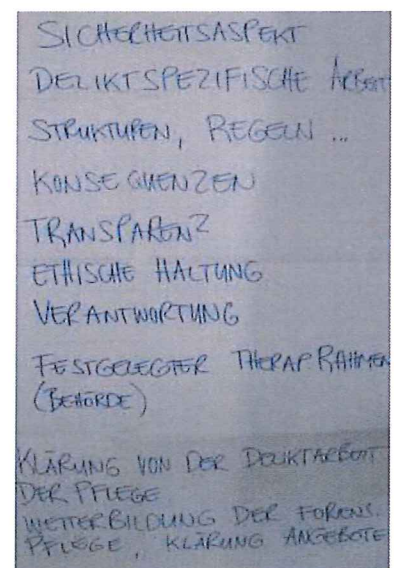 SICHERHEITSASPEKT
DELIKTSPEZIFISCHE ARBEIT
STRUKTUREN, REGELN ...
KONSEQUENZEN
TRANSPARENZ
ETHISCHE HALTUNG
VERANTWORTUNG
FESTGELEGTER THERAP RAHMEN
(BEHÖRDE)
KLÄRUNG VON DER DELIKTARBEIT
DER PFLEGE
WEITERBILDUNG DER FORENS.
PFLEGE, KLÄRUNG ANGEBOTE